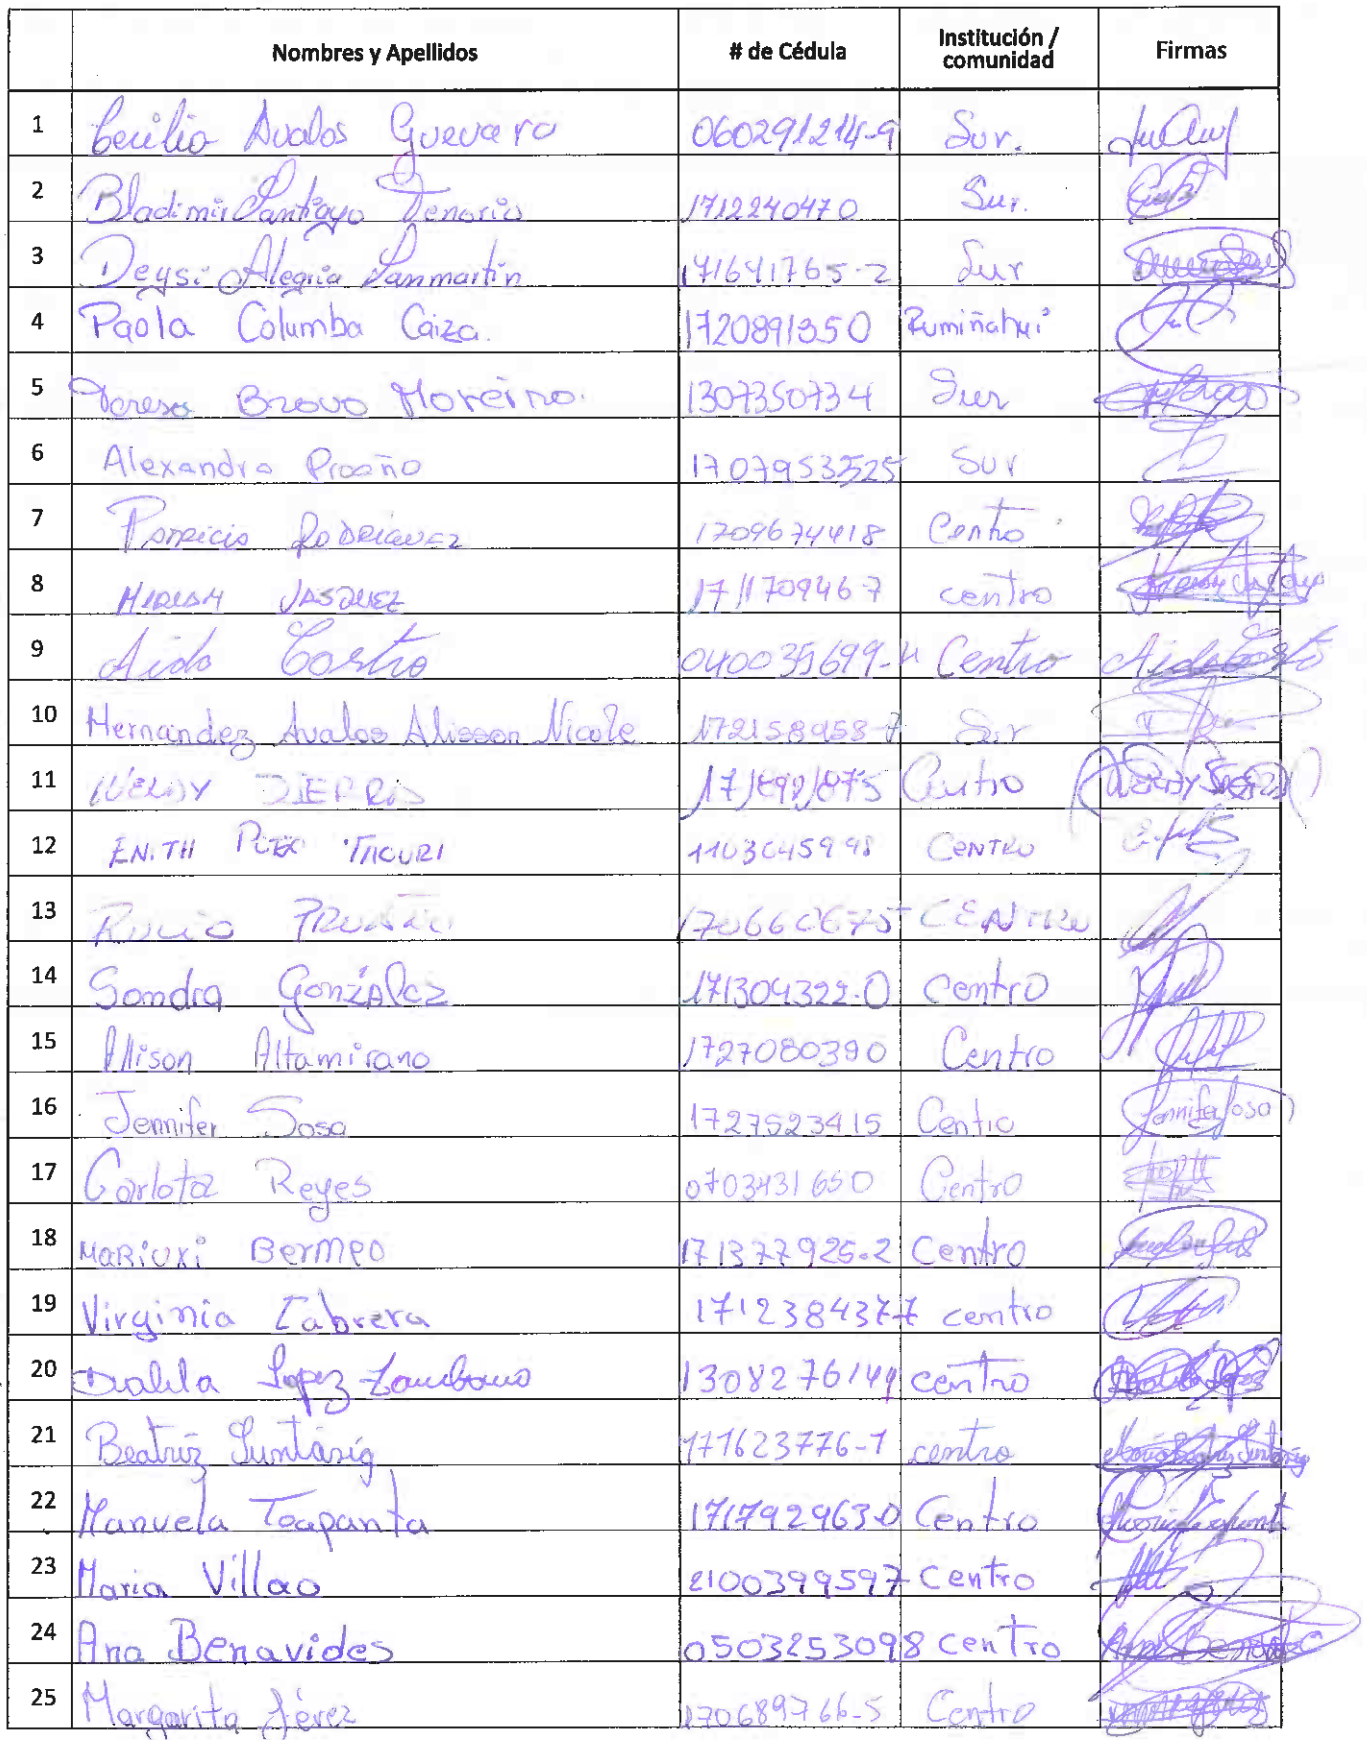 Nombres y Apellidos # de Cédula Institución / comunidad Firmas
1 Cecilia Avalos Guevara 060291214-9 Sur.
2 Bladimir Santiago Tenorio 1712240470 Sur.
3 Deysi Alegria Sanmartin 171641765-2 Sur
4 Paola Columba Caiza. 1720891350 Rumiñahui
5 Teresa Bravo Moreira. 1307350734 Sur
6 Alexandra Proaño 1707953525 Sur
7 Patricia Rodriguez 1709674418 Centro
8 Miriam Vasquez 1711709467 centro
9 Aida Castro 040035699-4 Centro Aida Castro
10 Hernandez Avalos Alisson Nicole 172158958-7 Sur
11 Wendy Centro
12 Enith Tacuri 1103045998 Centro
13 Rocio Centro
14 Sandra González 171304322-0 Centro
15 Allison Altamirano 1727080390 Centro
16 Jennifer Sosa 1727523415 Centro Jennifer Sosa
17 Carlota Reyes 0703431650 Centro
18 Mariuxi Bermeo 171377926-2 Centro
19 Virginia Cabrera 1712384377 centro
20 Dalila Lopez Zambrano 1308276144 centro
21 Beatriz Suntásig 171623776-1 centro
22 Manuela Toapanta 171792963-0 Centro
23 Maria Villao 2100399597 Centro
24 Ana Benavides 0503253098 centro Ana Benavides
25 Margarita Jérez 170689766-5 Centro